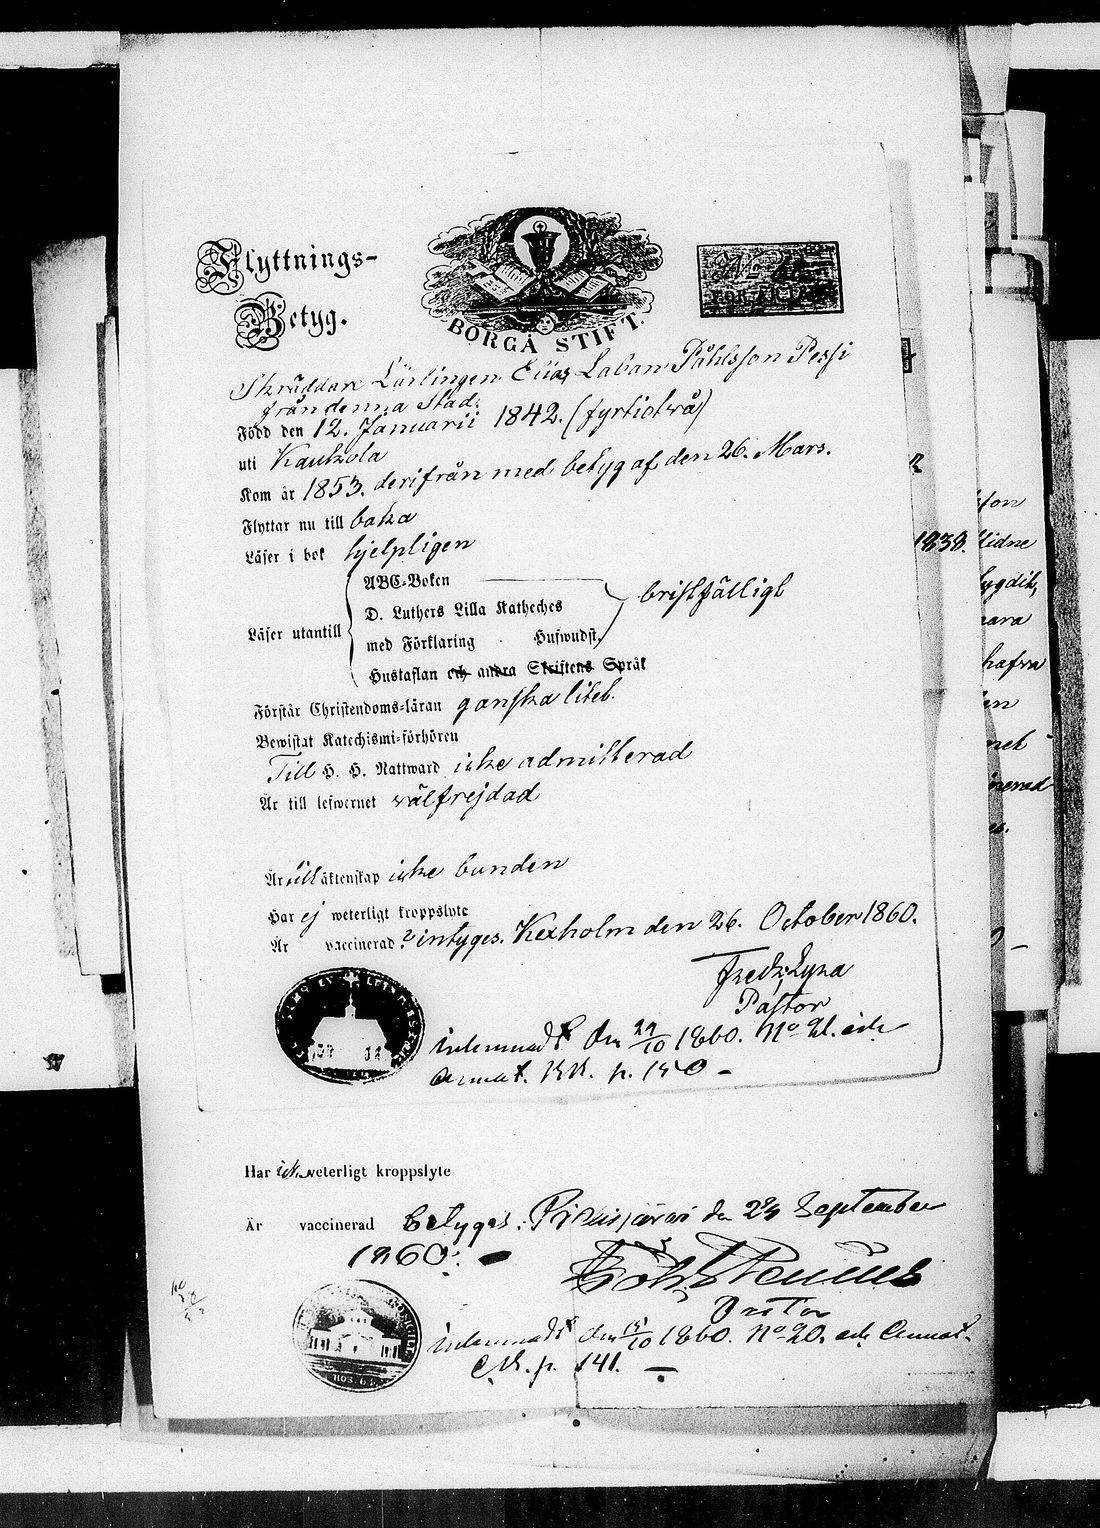 Flyttnings-
Betyg.
BORGÅ STIFT.
Skräddare Lärlingen Elias Laban Påhlsson Pessi
från denna Stad.
Född den 12. Januarii 1842. (fyrtiotvå)
uti Kaukola
Kom år 1853. derifrån med betyg af den 26. Mars.
Flyttar nu till baka
Läser i bok hjelpligen
ABC-Boken
D. Luthers Lilla Katheches
Läser utantill
med Förklaring Huswudst,
bristfälligt
Hustaflan och andra Skriftens Språk
Förstår Christendoms-läran ganska litet.
Bewistat Katechismi-förhören
Till H. H. Nattward icke admitterad
Är till lefwernet välfrejdad
Är till äktenskap icke bunden
Har ej weterligt kroppslyte
Är vaccinerad? intygas. Kexholm den 26. October 1860.
Fredr. Lyra
Pastor
inlemnadt den 29/10 1860. No 21. och
Annot. KB. p. 150 -
Har icke veterligt kroppslyte
Är vaccinerad betygas: den 24 September
1860.
Pastor
inlemnadt den 1860. No 20. och Annot.
p. 141. -
1838.